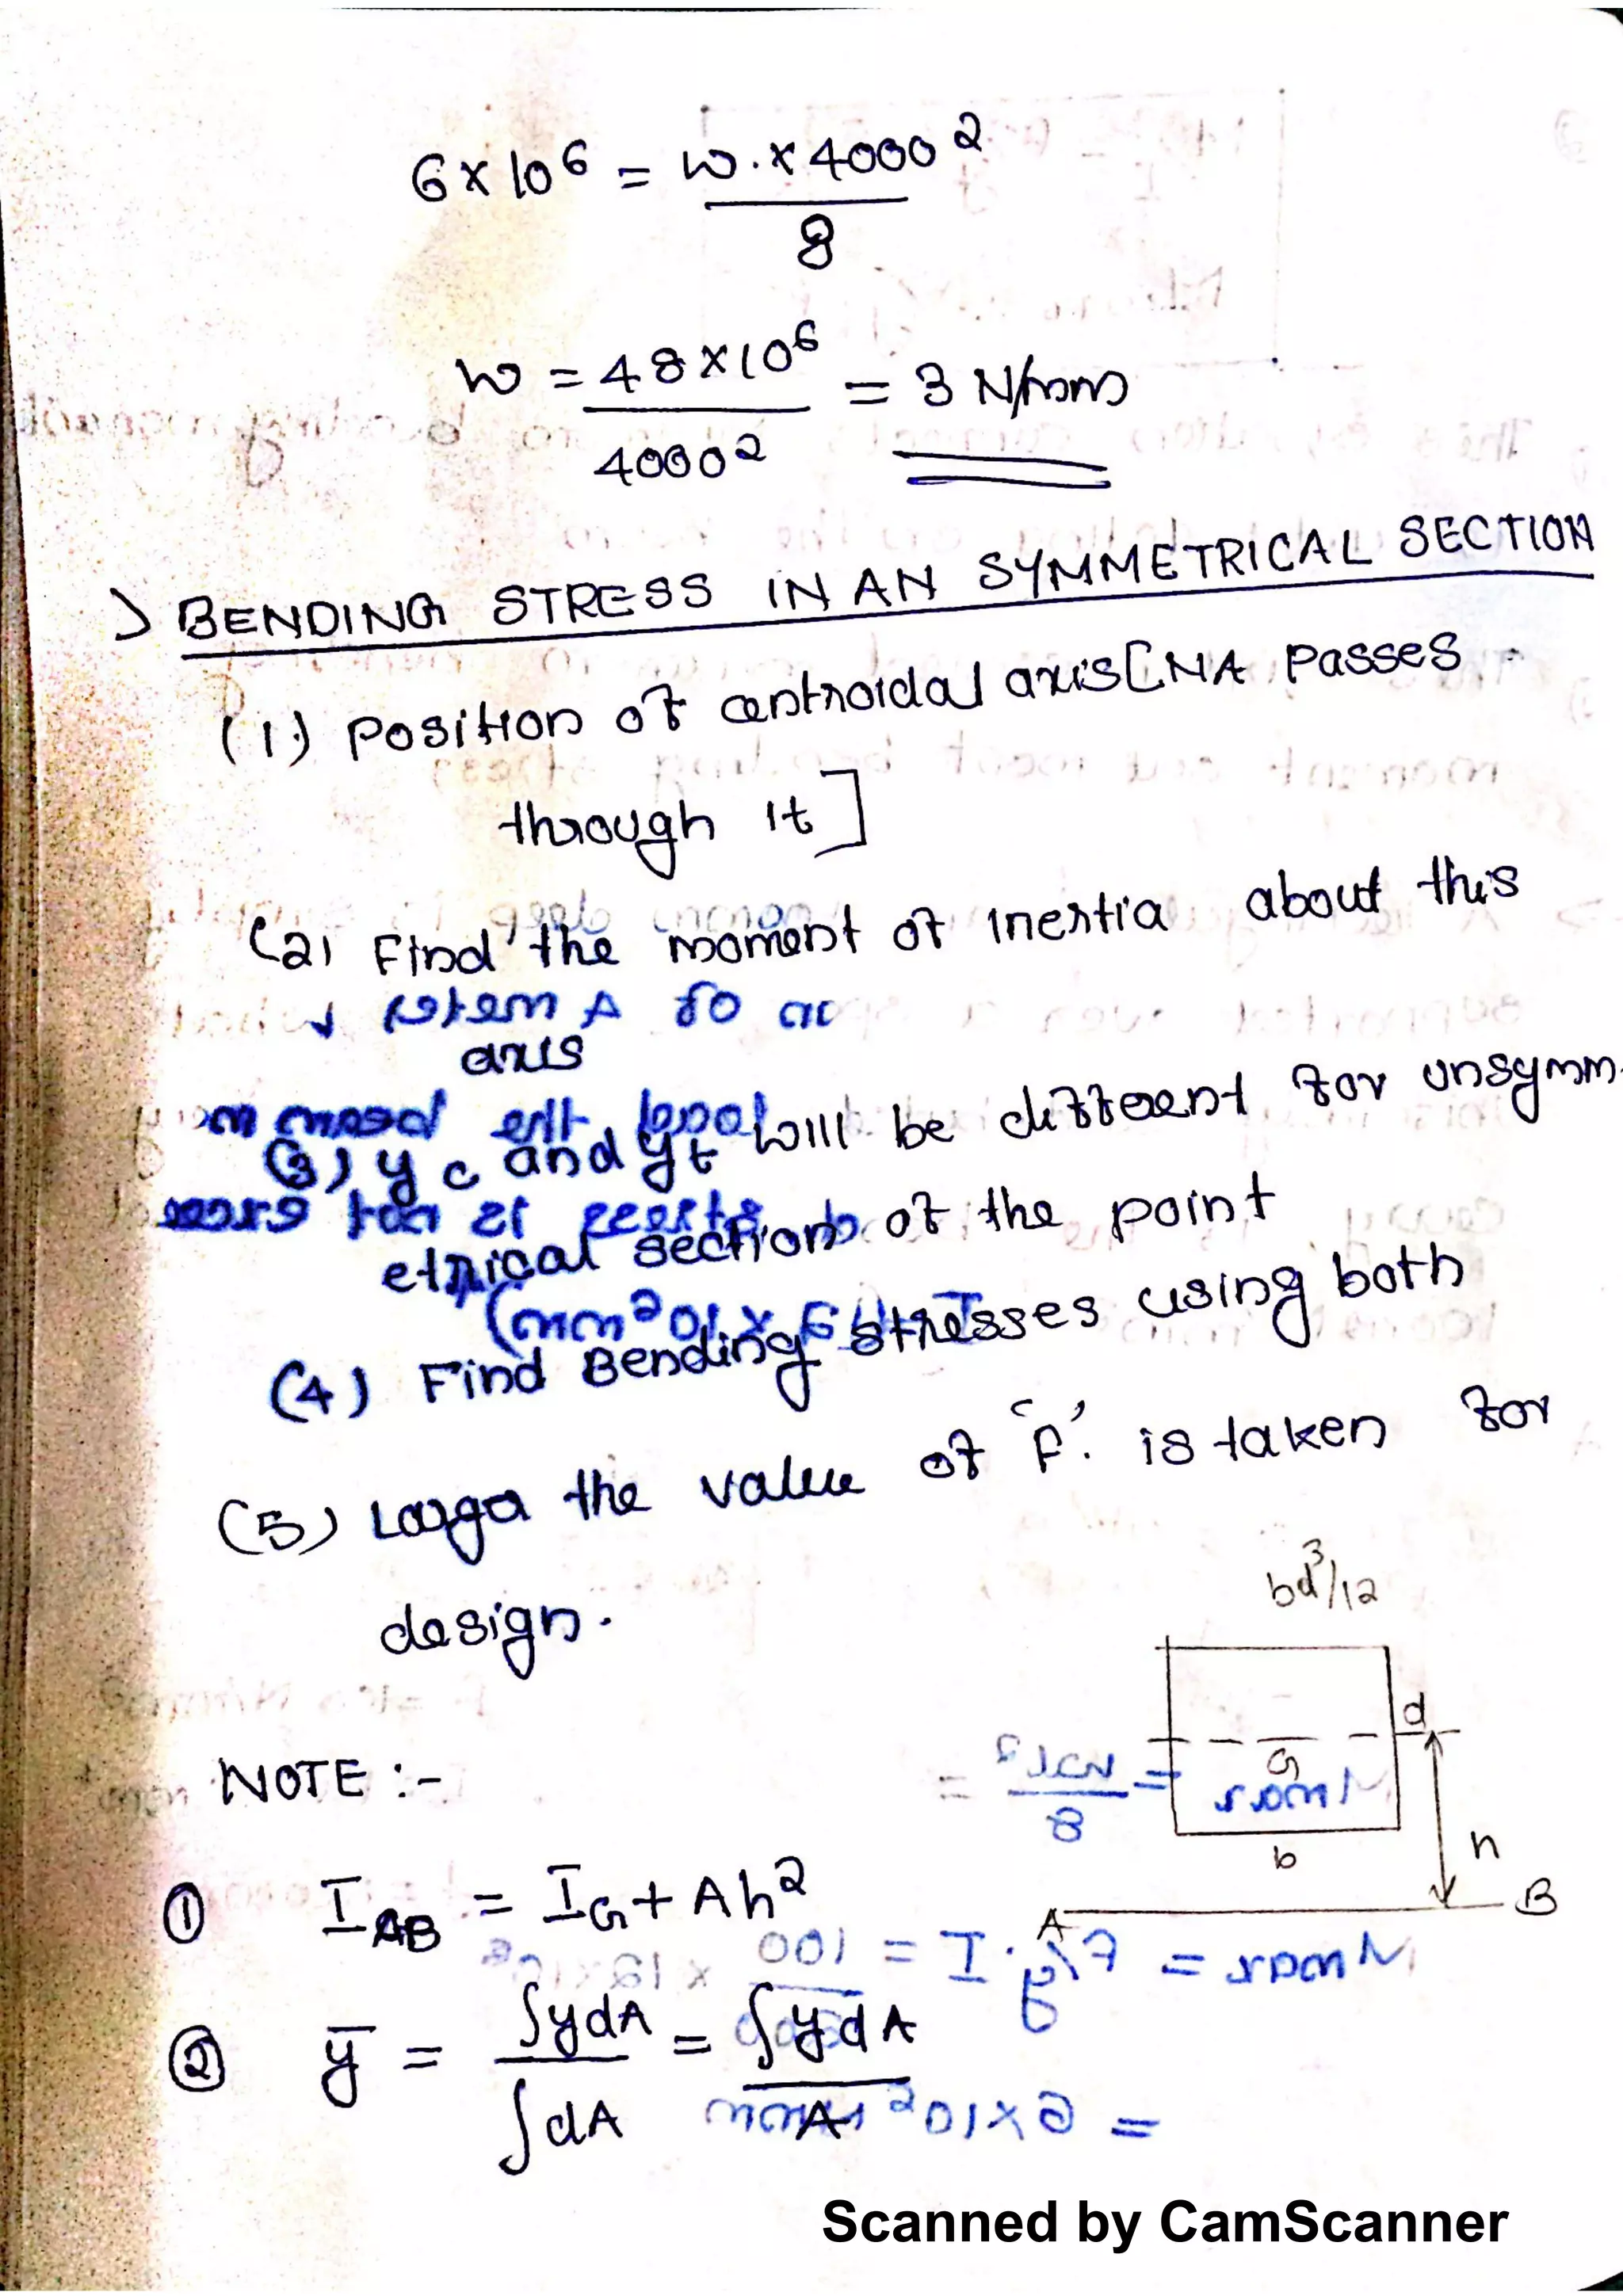 6 × 10⁶ = w. × 4000²
8
w = 48 × 10⁶ = 3 N/mm
4000²
> BENDING STRESS IN AN SYMMETRICAL SECTION
(1) Position of centroidal axis [NA Passes
through it]
(2) Find the moment of inertia about this
axis
(3) yc and yt will be different for unsymm-
etrical section of the point
(4) Find Bending stresses using both
(5) Larger the value of 'F'. is taken for
design.
bd³/12
d
G
b
h
A B
NOTE :-
① I_AB = I_G + Ah²
② ȳ = ∫ydA = ∫ydA
∫dA A
Scanned by CamScanner